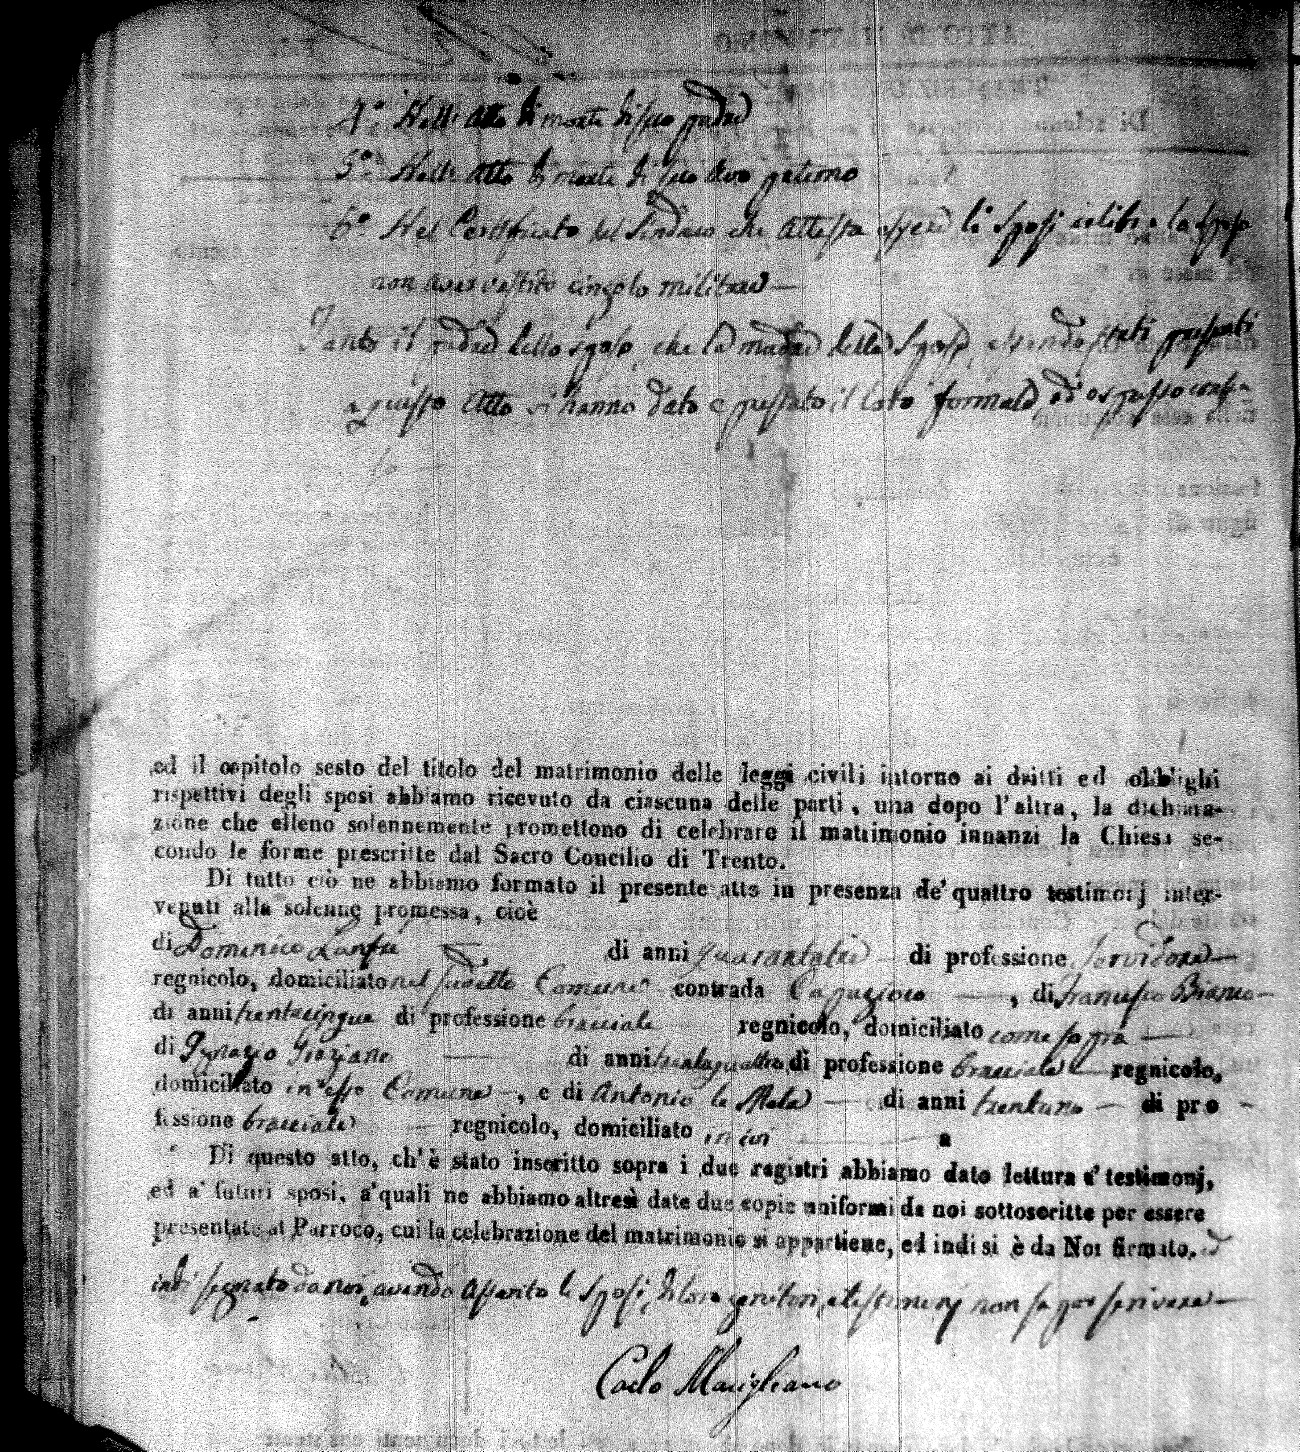 4.° Nell'atto di morte di suo padre
5.° Nell'atto di morte di suo avo paterno
6.° Nel Certificato del Sindaco che attesta essere li Sposi celibi e lo sposo
non aver vestito cingolo militare —
Tanto il padre dello sposo, che la madre della Sposa, essendo stati presenti
a questo atto vi hanno dato e prestato il loro formale ed espresso
ed il capitolo sesto del titolo del matrimonio delle leggi civili intorno ai dritti ed obblighi
rispettivi degli sposi abbiamo ricevuto da ciascuna delle parti, una dopo l'altra, la dichiara-
zione che elleno solennemente promettono di celebrare il matrimonio innanzi la Chiesa se-
condo le forme prescritte dal Sacro Concilio di Trento.
Di tutto ciò ne abbiamo formato il presente atto in presenza de' quattro testimonj inter-
venuti alla solenne promessa, cioè
di Domenico di anni quarantatre di professione Servidore —
regnicolo, domiciliato nel suddetto Comune contrada —, di Francesco Bianco —
di anni trentacinque di professione bracciale regnicolo, domiciliato come sopra —
di Ignazio Graziano — di anni trentaquattro di professione bracciale — regnicolo,
domiciliato in esso Comune —, e di Antonio la Mela — di anni trentuno — di pro -
fessione bracciale — regnicolo, domiciliato in ivi — a
Di questo atto, ch'è stato inscritto sopra i due registri abbiamo dato lettura a' testimonj,
ed a' futuri sposi, a'quali ne abbiamo altresì date due copie uniformi da noi sottoscritte per essere
presentate al Parroco, cui la celebrazione del matrimonio si appartiene, ed indi si è da Noi firmato. ed
indi segnato da noi, avendo asserito li Sposi, di loro genitori, e testimonj non saper scrivere —
Carlo Marigliano